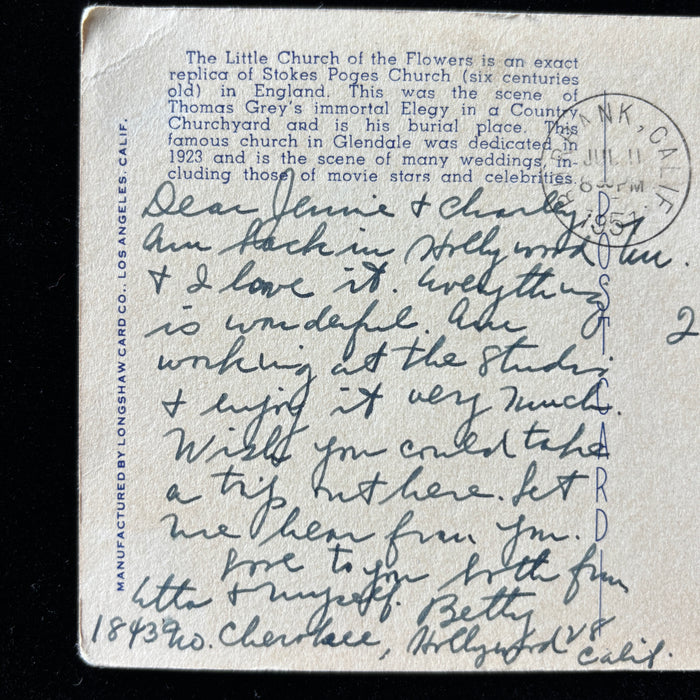 The Little Church of the Flowers is an exact
replica of Stokes Poges Church (six centuries
old) in England. This was the scene of
Thomas Grey's immortal Elegy in a Country
Churchyard and is his burial place. This
famous church in Glendale was dedicated in
1923 and is the scene of many weddings, in-
cluding those of movie stars and celebrities.
BURBANK, CALIF.
JUL 11
6 PM
1957
Dear Jennie & Charley,
Am back in Hollywood
& I love it. Everything
is wonderful. Am
working at the Studio
& enjoy it very much.
Wish you could take
a trip out here. Let
me hear from you.
Love to you both from
Etta & myself. Betty
1843 No. Cherokee, Hollywood 28
Calif.
POST CARD
MANUFACTURED BY LONGSHAW CARD CO., LOS ANGELES, CALIF.
2